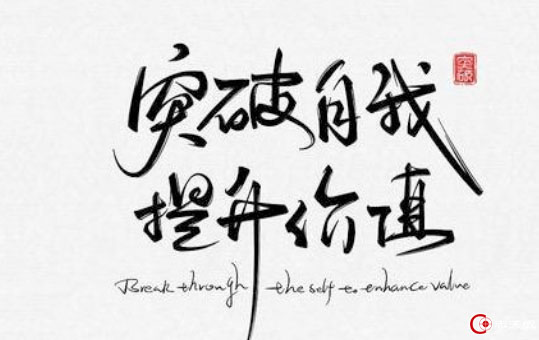 突破自我
突破
提升价值
Break through the self to enhance value